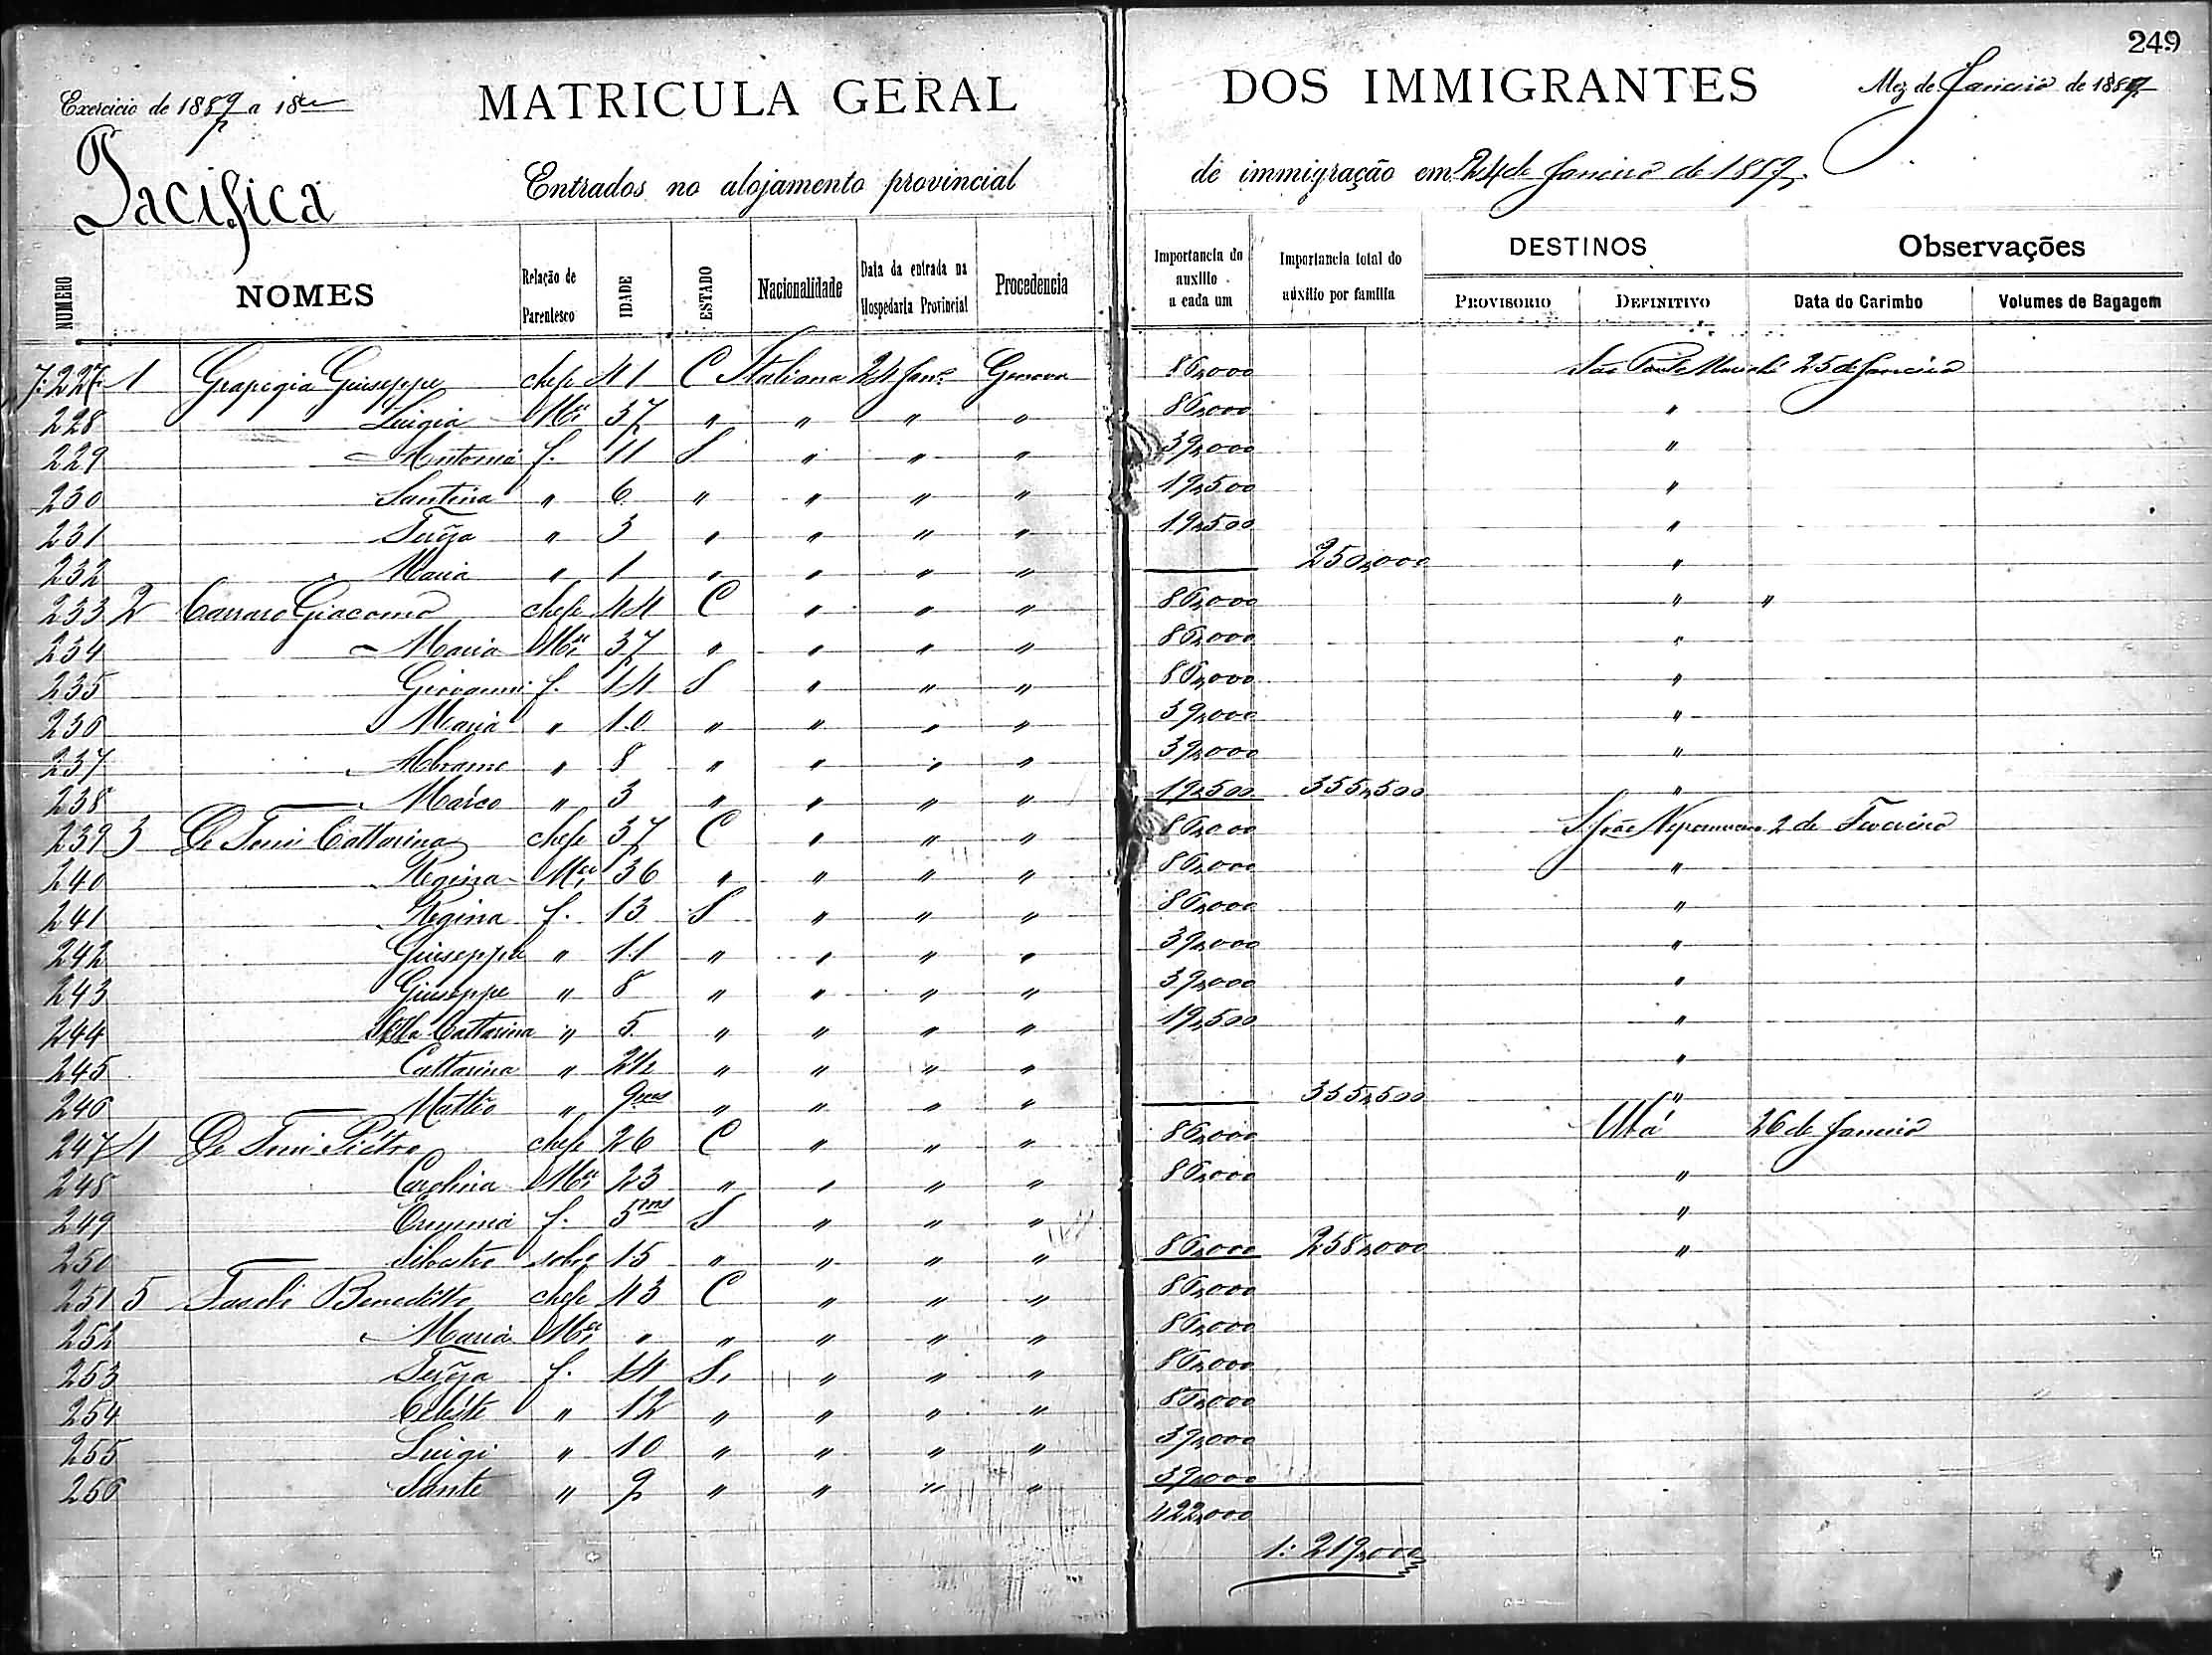 249
Exercicio de 1889 a 18
MATRICULA GERAL DOS IMMIGRANTES
Mez de Janeiro de 1889
Pacifica
Entrados no alojamento provincial de immigração em 24 de Janeiro de 1889.
NUMERO NOMES Relação de Parentesco IDADE ESTADO Nacionalidade Data da entrada na Hospedaria Provincial Procedencia Importancia do auxilio a cada um Importancia total do auxilio por familia DESTINOS PROVISORIO DEFINITIVO Observações Data do Carimbo Volumes de Bagagem
7:227 1 Giuseppe chefe 41 C Italiana 24 Janº Genova 86,000 25 de Janeiro
228 Luigia Mer 37 " " " " 86,000 "
229 Antonia f. 11 S " " " 39,000 "
230 Santina " 6 " " " " 19,500 "
231 " 3 " " " " 19,500 "
232 Maria " 1 " " " " 250,000 "
233 2 Carraro Giacomo chefe 44 C " " " 86,000 " "
234 Maria Mer 37 " " " " 86,000 "
235 Giovanni f. 14 S " " " 86,000 "
236 Maria " 10 " " " " 39,000 "
237 Abramo " 8 " " " " 39,000 "
238 Marco " 3 " " " " 19,500 355,500 "
239 3 De Toni Cattarina chefe 37 C " " " 86,000 S. João Nepomuceno 2 de Fevereiro
240 Regina Mer 36 " " " " 86,000 "
241 Regina f. 13 S " " " 86,000 "
242 Giuseppa " 11 " " " " 39,000 "
243 Giuseppe " 8 " " " " 39,000 "
244 Cattarina " 5 " " " " 19,500 "
245 Cattarina " 2 1/2 " " " " "
246 Mattéo " 9 mes " " " " 355,500 "
247 4 De Toni Piétro chefe 26 C " " " 86,000 Ubá 26 de Janeiro
248 Carolina Mer 23 " " " " 86,000 "
249 f. 5 ms S " " " "
250 Silvestro sobr. 15 " " " " 86,000 258,000 "
251 5 Benedétto chefe 43 C " " " 86,000
252 Maria Mer " " " " " 86,000
253 f. 14 S. " " " 86,000
254 Celéste " 12 " " " " 86,000
255 Luigi " 10 " " " " 39,000
256 Sante " 9 " " " " 39,000
422,000
1:219,000